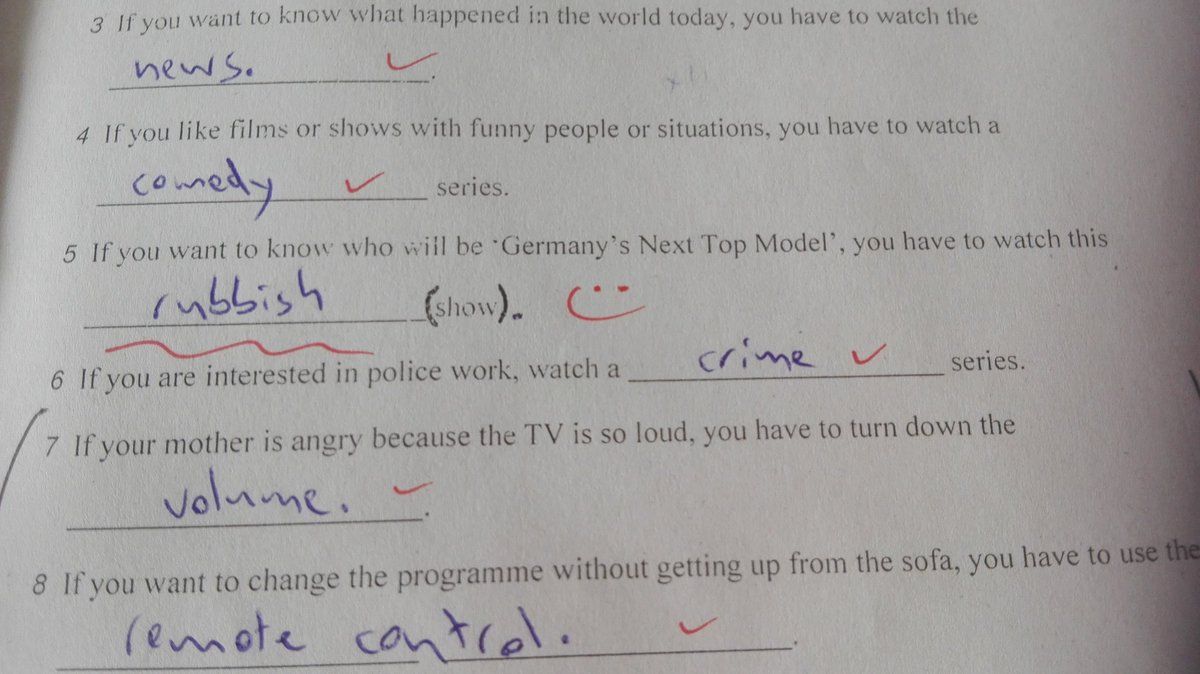 3 If you want to know what happened in the world today, you have to watch the
news. .
4 If you like films or shows with funny people or situations, you have to watch a
comedy series.
5 If you want to know who will be 'Germany's Next Top Model', you have to watch this
rubbish (show).
6 If you are interested in police work, watch a crime series.
7 If your mother is angry because the TV is so loud, you have to turn down the
volume. .
8 If you want to change the programme without getting up from the sofa, you have to use the
remote control. .